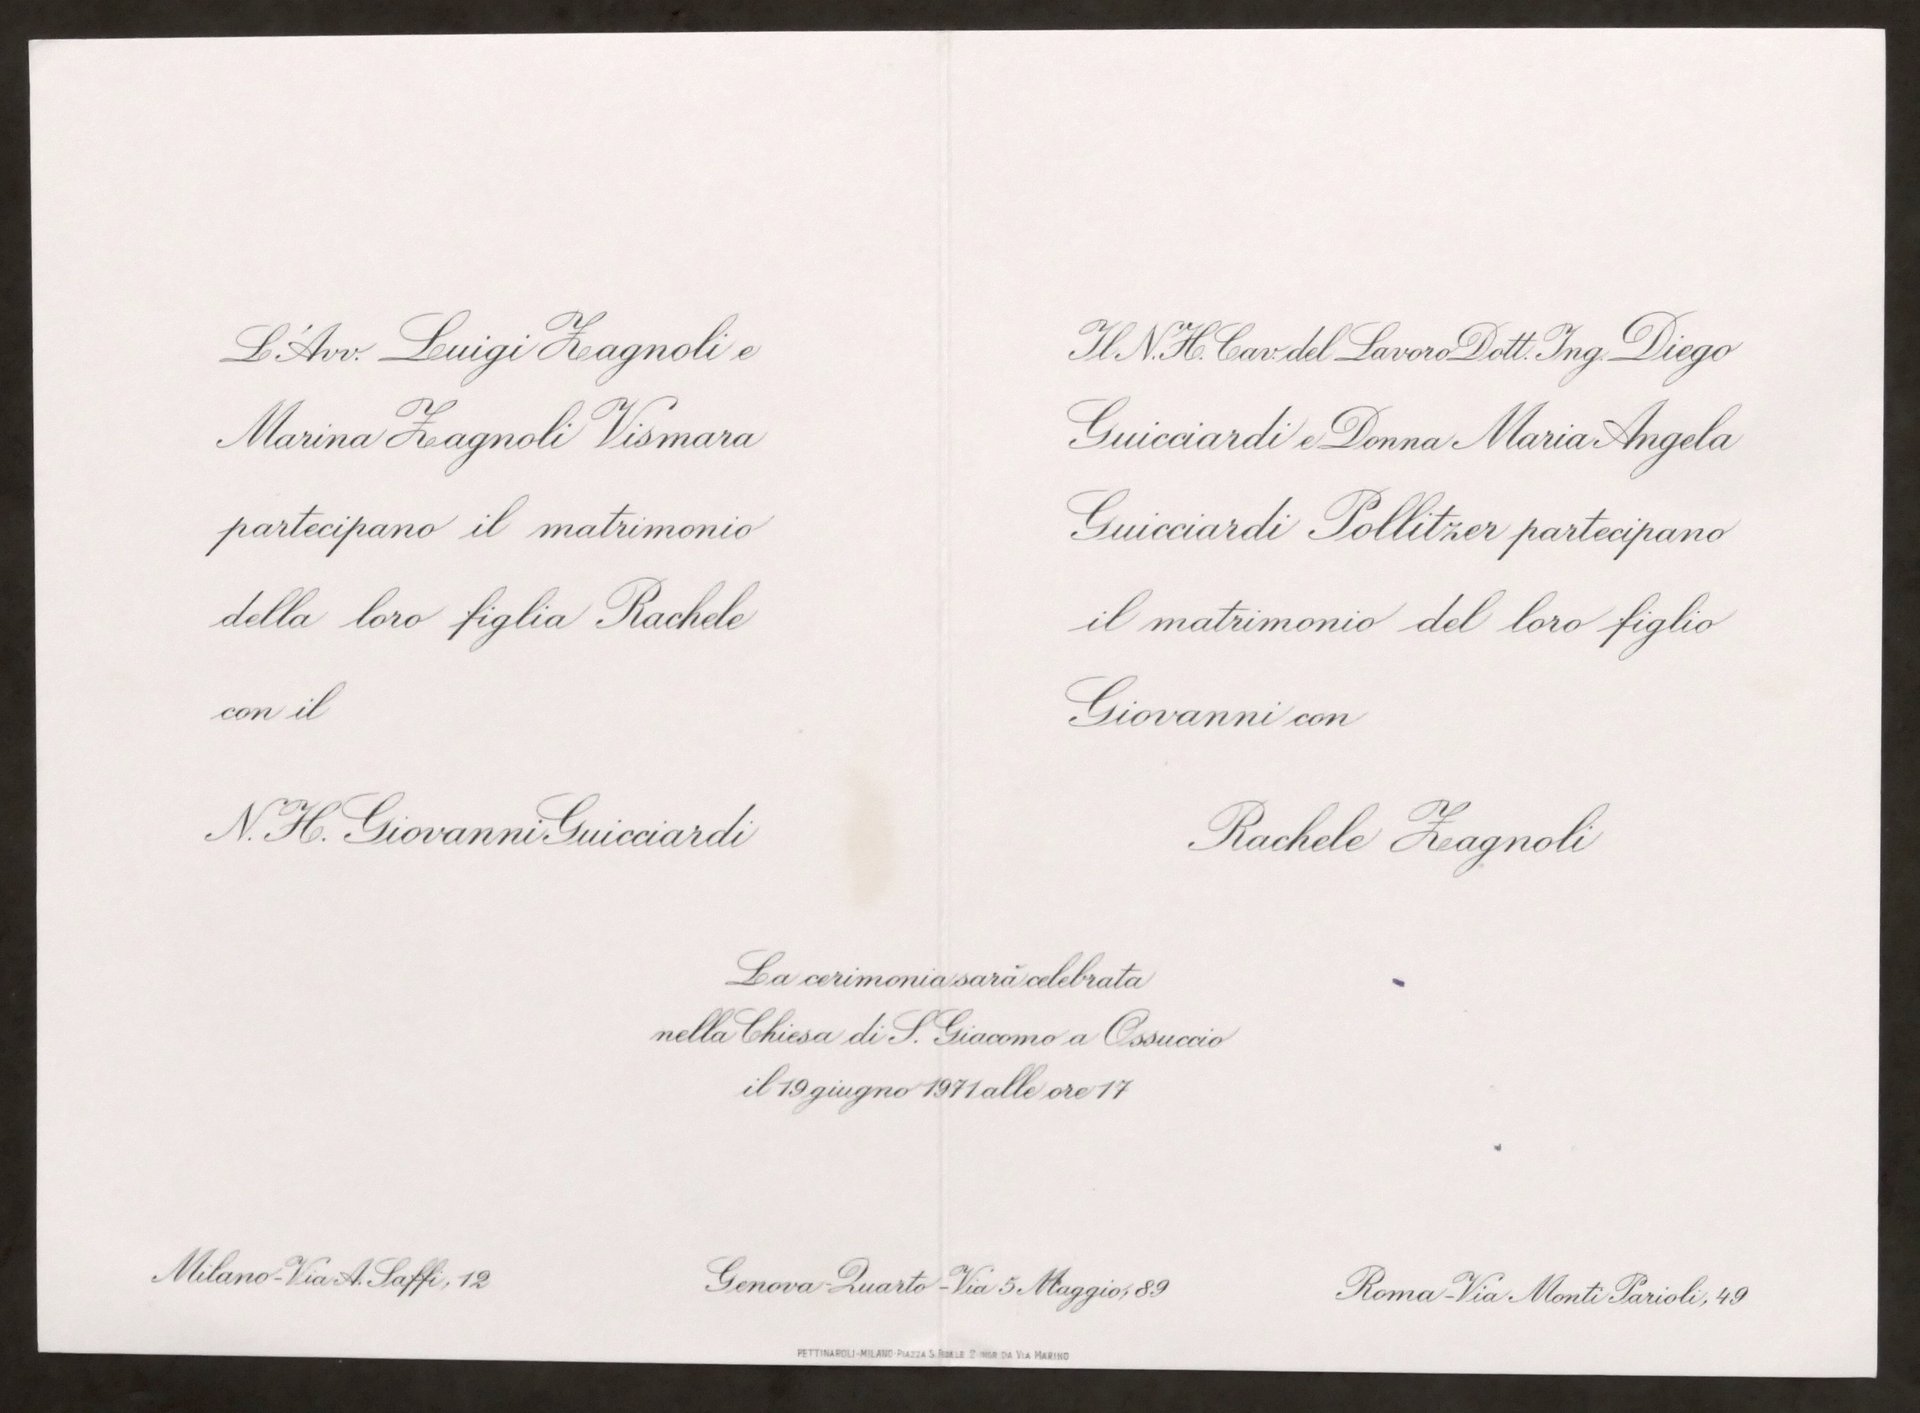 L'Avv. Luigi Zagnoli e
Marina Zagnoli Vismara
partecipano il matrimonio
della loro figlia Rachele
con il
N. H. Giovanni Guicciardi
Il N. H. Cav. del Lavoro Dott. Ing. Diego
Guicciardi e Donna Maria Angela
Guicciardi Pollitzer partecipano
il matrimonio del loro figlio
Giovanni con
Rachele Zagnoli
La cerimonia sarà celebrata
nella Chiesa di S. Giacomo a Ossuccio
il 19 giugno 1971 alle ore 17
Milano - Via A. Saffi, 12
Genova-Quarto - Via 5 Maggio, 89
Roma - Via Monti Parioli, 49
PETTINAROLI-MILANO-PIAZZA S. FEDELE 2 INGR. DA VIA MARINO